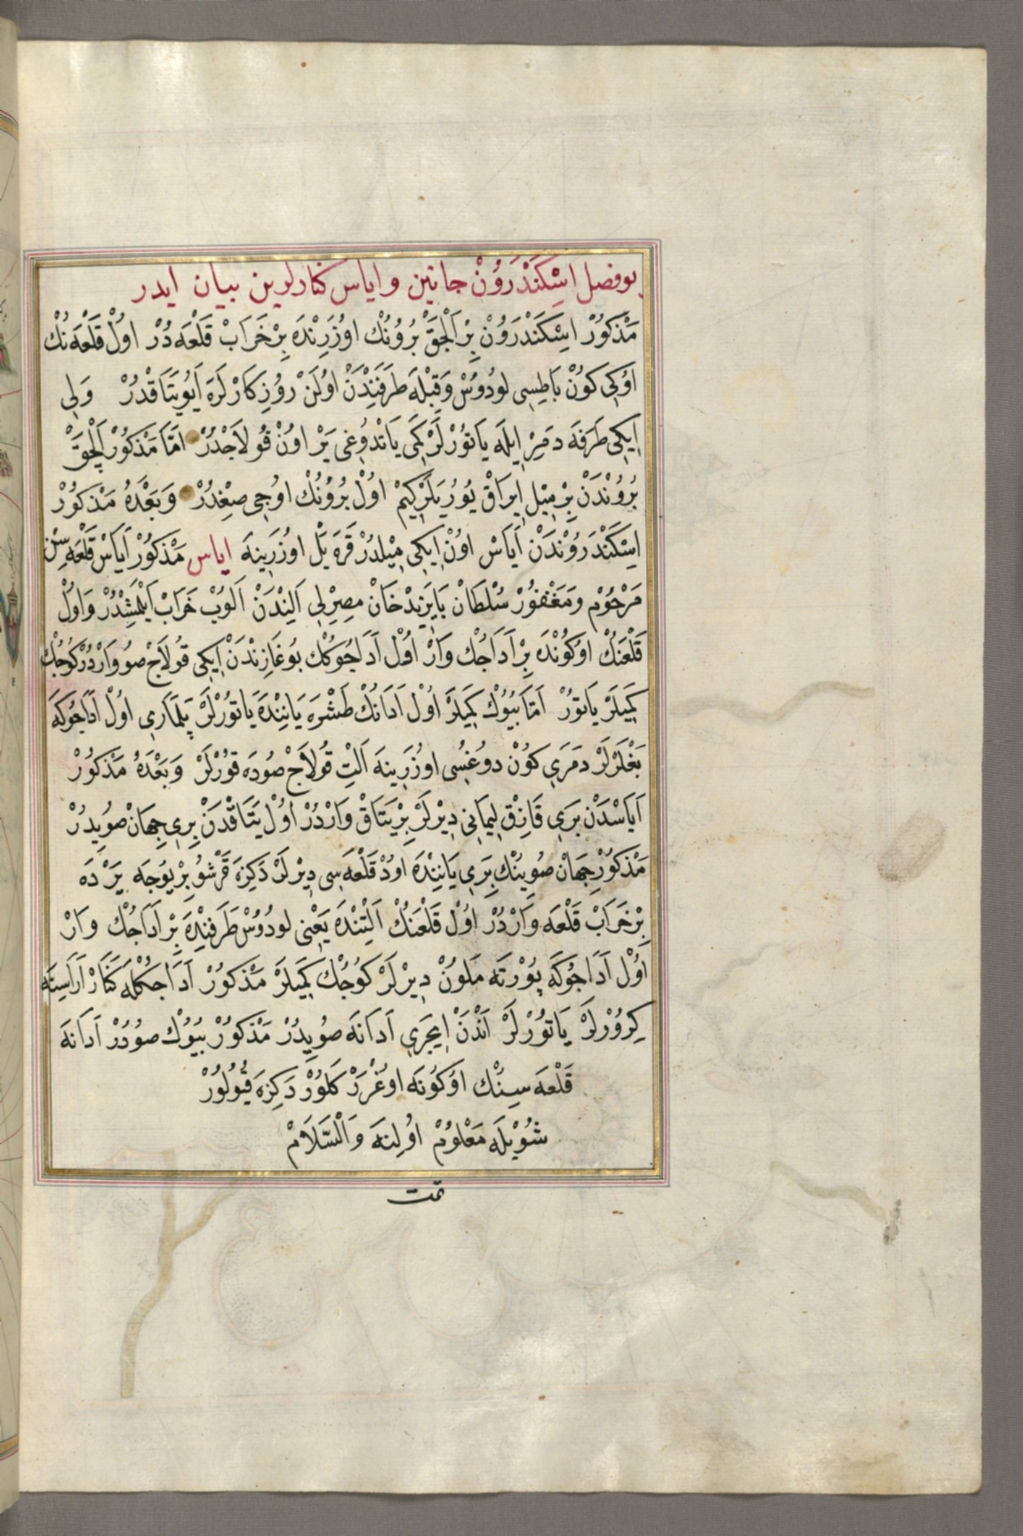 بو فصل اِسْكَنْدَرُونْ جانبين و اياس كنارلرين بيان ايدر
مَذْكُورْ اِسْكَنْدَرُونْ بِرْ اَلْجَقْ بُرُونُكْ اُوزَرِنْدَه بِرْ خَرَابْ قَلْعَه دُرْ اُولْ قَلْعَه نُكْ
اُوكِى كُونْ بَاطِسِى لودُوسْ وَقِبْلَه طَرَفِنْدَنْ اُولَنْ رُوزِكَارْلَرَه اَيُو يَتَاقْدُرْ وَلِى
اِيكِى طَرَفَه دَمِرْ اِيلَه يَاتُورْلَرْ كَمِى يَاتْدُوغِى يَرْ اُونْ قُولاَجْدُرْ اَمَّا مَذْكُورْ اَلْجَقْ
بُرُونْدَنْ بِرْ مِيلْ اِيرَاقْ يُورُيَلَرْكِيمْ اُولْ بُرُونُكْ اُوجِى صِغِدُرْ وَبَعْدَهُ مَذْكُورْ
اِسْكَنْدَرُونْدَنْ اَيَاسْ اُونْ اِيكِى مِيلْدُرْ قَرَه يَلْ اُوزَرِينَه اياس مَذْكُورْ اَيَاسْ قَلْعَه سِنْ
مَرْحُومْ وَمَغْفُورْ سُلْطَانْ بَايَزِيدْ خَانْ مِصِرْلِى اَلِنْدَنْ اَلُوبْ خَرَابْ اَيْلَمِشْدُرْ وَاُولْ
قَلْعَنُكْ اُوكُونْدَه بِرْ اَدَاجُكْ وَارْ اُولْ اَدَاجُوكُكْ بُوغَازِنْدَنْ اِيكِى قُولاَجْ صُو وَارْدُرْ كُوجُكْ
كَمِيلَرْ يَاتُورْ اَمَّا بُيُوكْ كَمِيلَرْ اُولْ اَدَانُكْ طَشْرَه يَانِنْدَه يَاتُورْلَرْ پَلَمَارِى اُولْ اَدَاجُوكَه
بَغْلَرْلَرْ دَمَرِى كُونْ دوُغُسِى اُوزَرِينَه اَلْتِ قُولاَجْ صُودَه قُورْلَرْ وَبَعْدَهُ مَذْكُورْ
اَيَاسْدَنْ بَرِى قَازِقْ لِيمَانِى دِيرْلَرْ بِرْ يَتَاقْ وَارْدُرْ اُولْ يَتَاقْدَنْ بِرِى جِهَانْ صُويِدُرْ
مَذْكُورْ جِهَانْ صُويِنُكْ بَرِى يَانِنْدَه اوُدْ قَلْعَه سِى دِيرْلَرْ دَكِزَه قَرْشُو بِرْ يُوجَه يَرْدَه
بِرْ خَرَابْ قَلْعَه وَارْدُرْ اُولْ قَلْعَنُكْ اَلْتِنْدَه يَعْنِى لودُوسْ طَرَفِنْدَه بِرْ اَدَاجُكْ وَارْ
اُولْ اَدَاجُوكَه پُورْتَه مَلُونْ دِيرْلَرْ كُوجُكْ كَمِيلَرْ مَذْكُورْ اَدَاجُكْلَه كَنَارْ اَرَاسِنَه
كِرُورْلَرْ يَاتُورْلَرْ اَنْدَنْ اِيچَرِى اَدَانَه صُويِدُرْ مَذْكُورْ بُيُوكْ صُودُرْ اَدَانَه
قَلْعَه سِنُكْ اُوكُونَه اُوغْرَرْ كَلُورْ دَكِزَه قُيُولُورْ
شُوِيْلَه مَعْلُومْ اُولِنَه وَالسَّلاَمْ
تمت